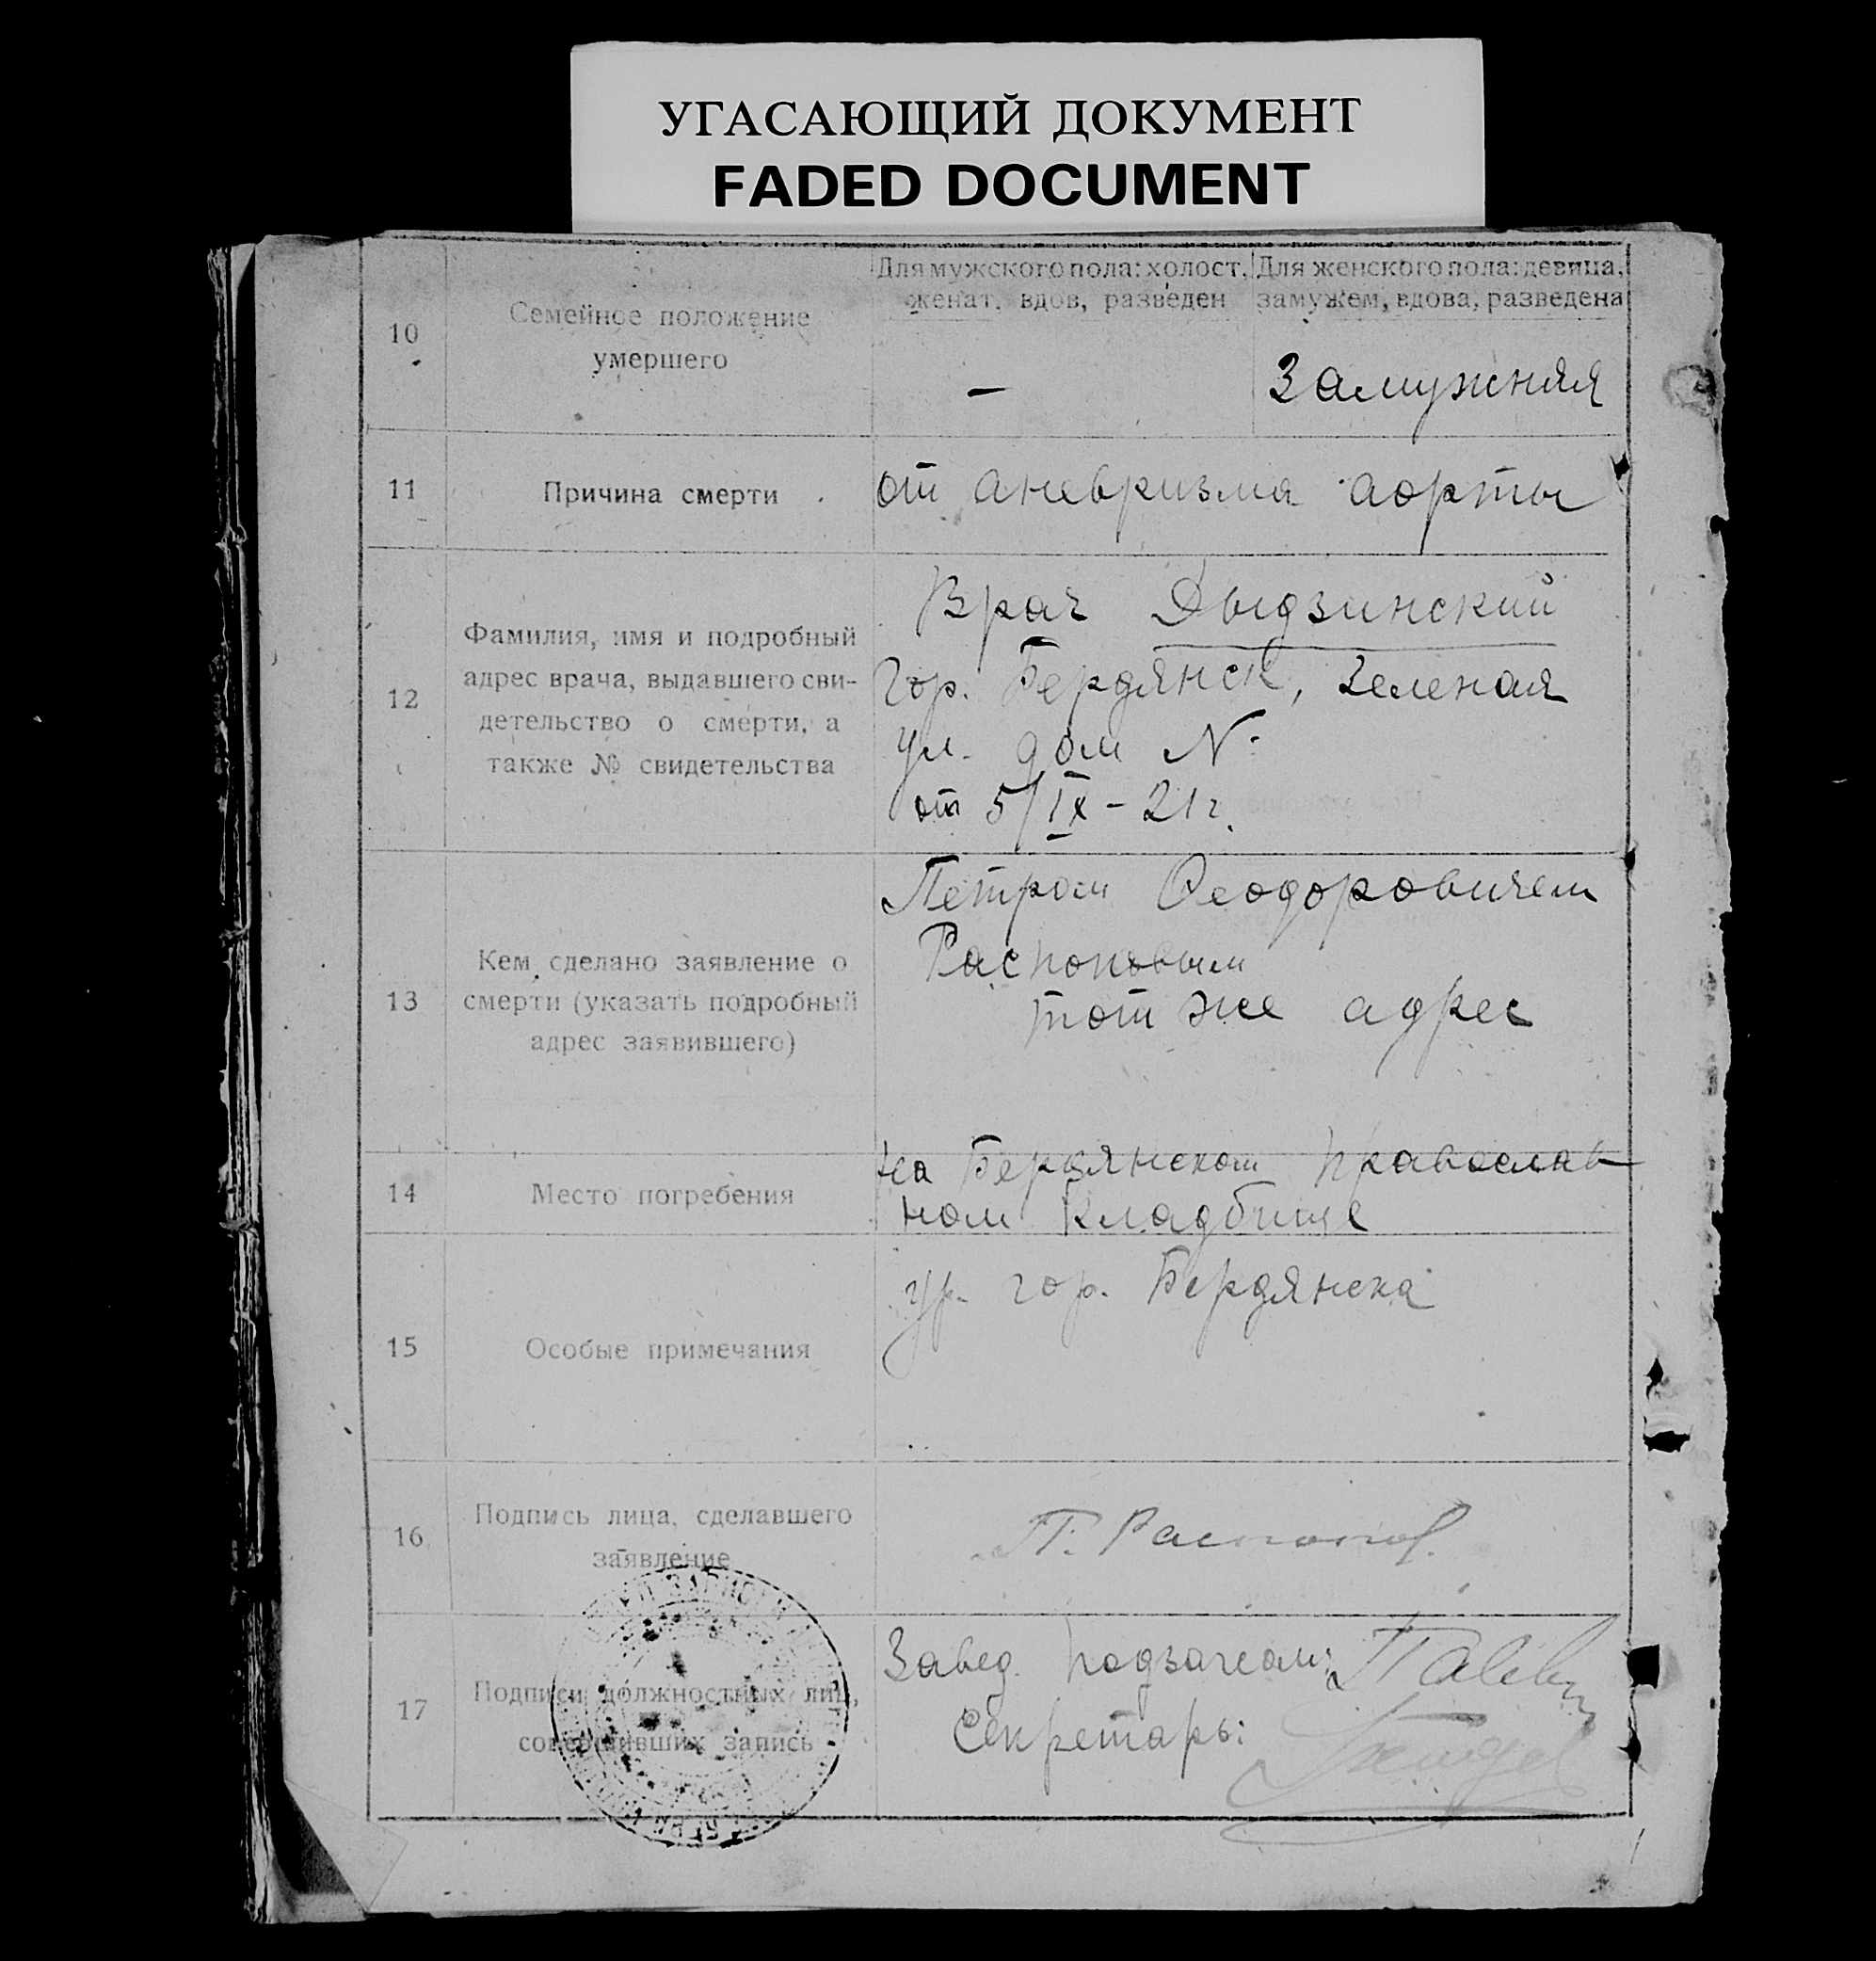 УГАСАЮЩИЙ ДОКУМЕНТ
FADED DOCUMENT
10
Семейное положение
умершего
Для мужского пола: холост,
женат, вдов, разведен
Для женского пола: девица,
замужем, вдова, разведена
—
Замужняя
11
Причина смерти
от аневризма аорты
12
Фамилия, имя и подробный
адрес врача, выдавшего сви-
детельство о смерти, а
также № свидетельства
Врач Дыдзинский
Гор. Бердянск, Зеленая
ул. дом №
от 5/IX - 21 г.
13
Кем сделано заявление о
смерти (указать подробный
адрес заявившего)
Петром Феодоровичем
Распоповым
тот же адрес
14
Место погребения
на Бердянском Православ
ном кладбище
15
Особые примечания
ур. гор. Бердянска
16
Подпись лица, сделавшего
заявление
П. Распопов
17
Подписи должностных лиц,
совершивших запись
Завед. Подзагсом:
Секретарь: